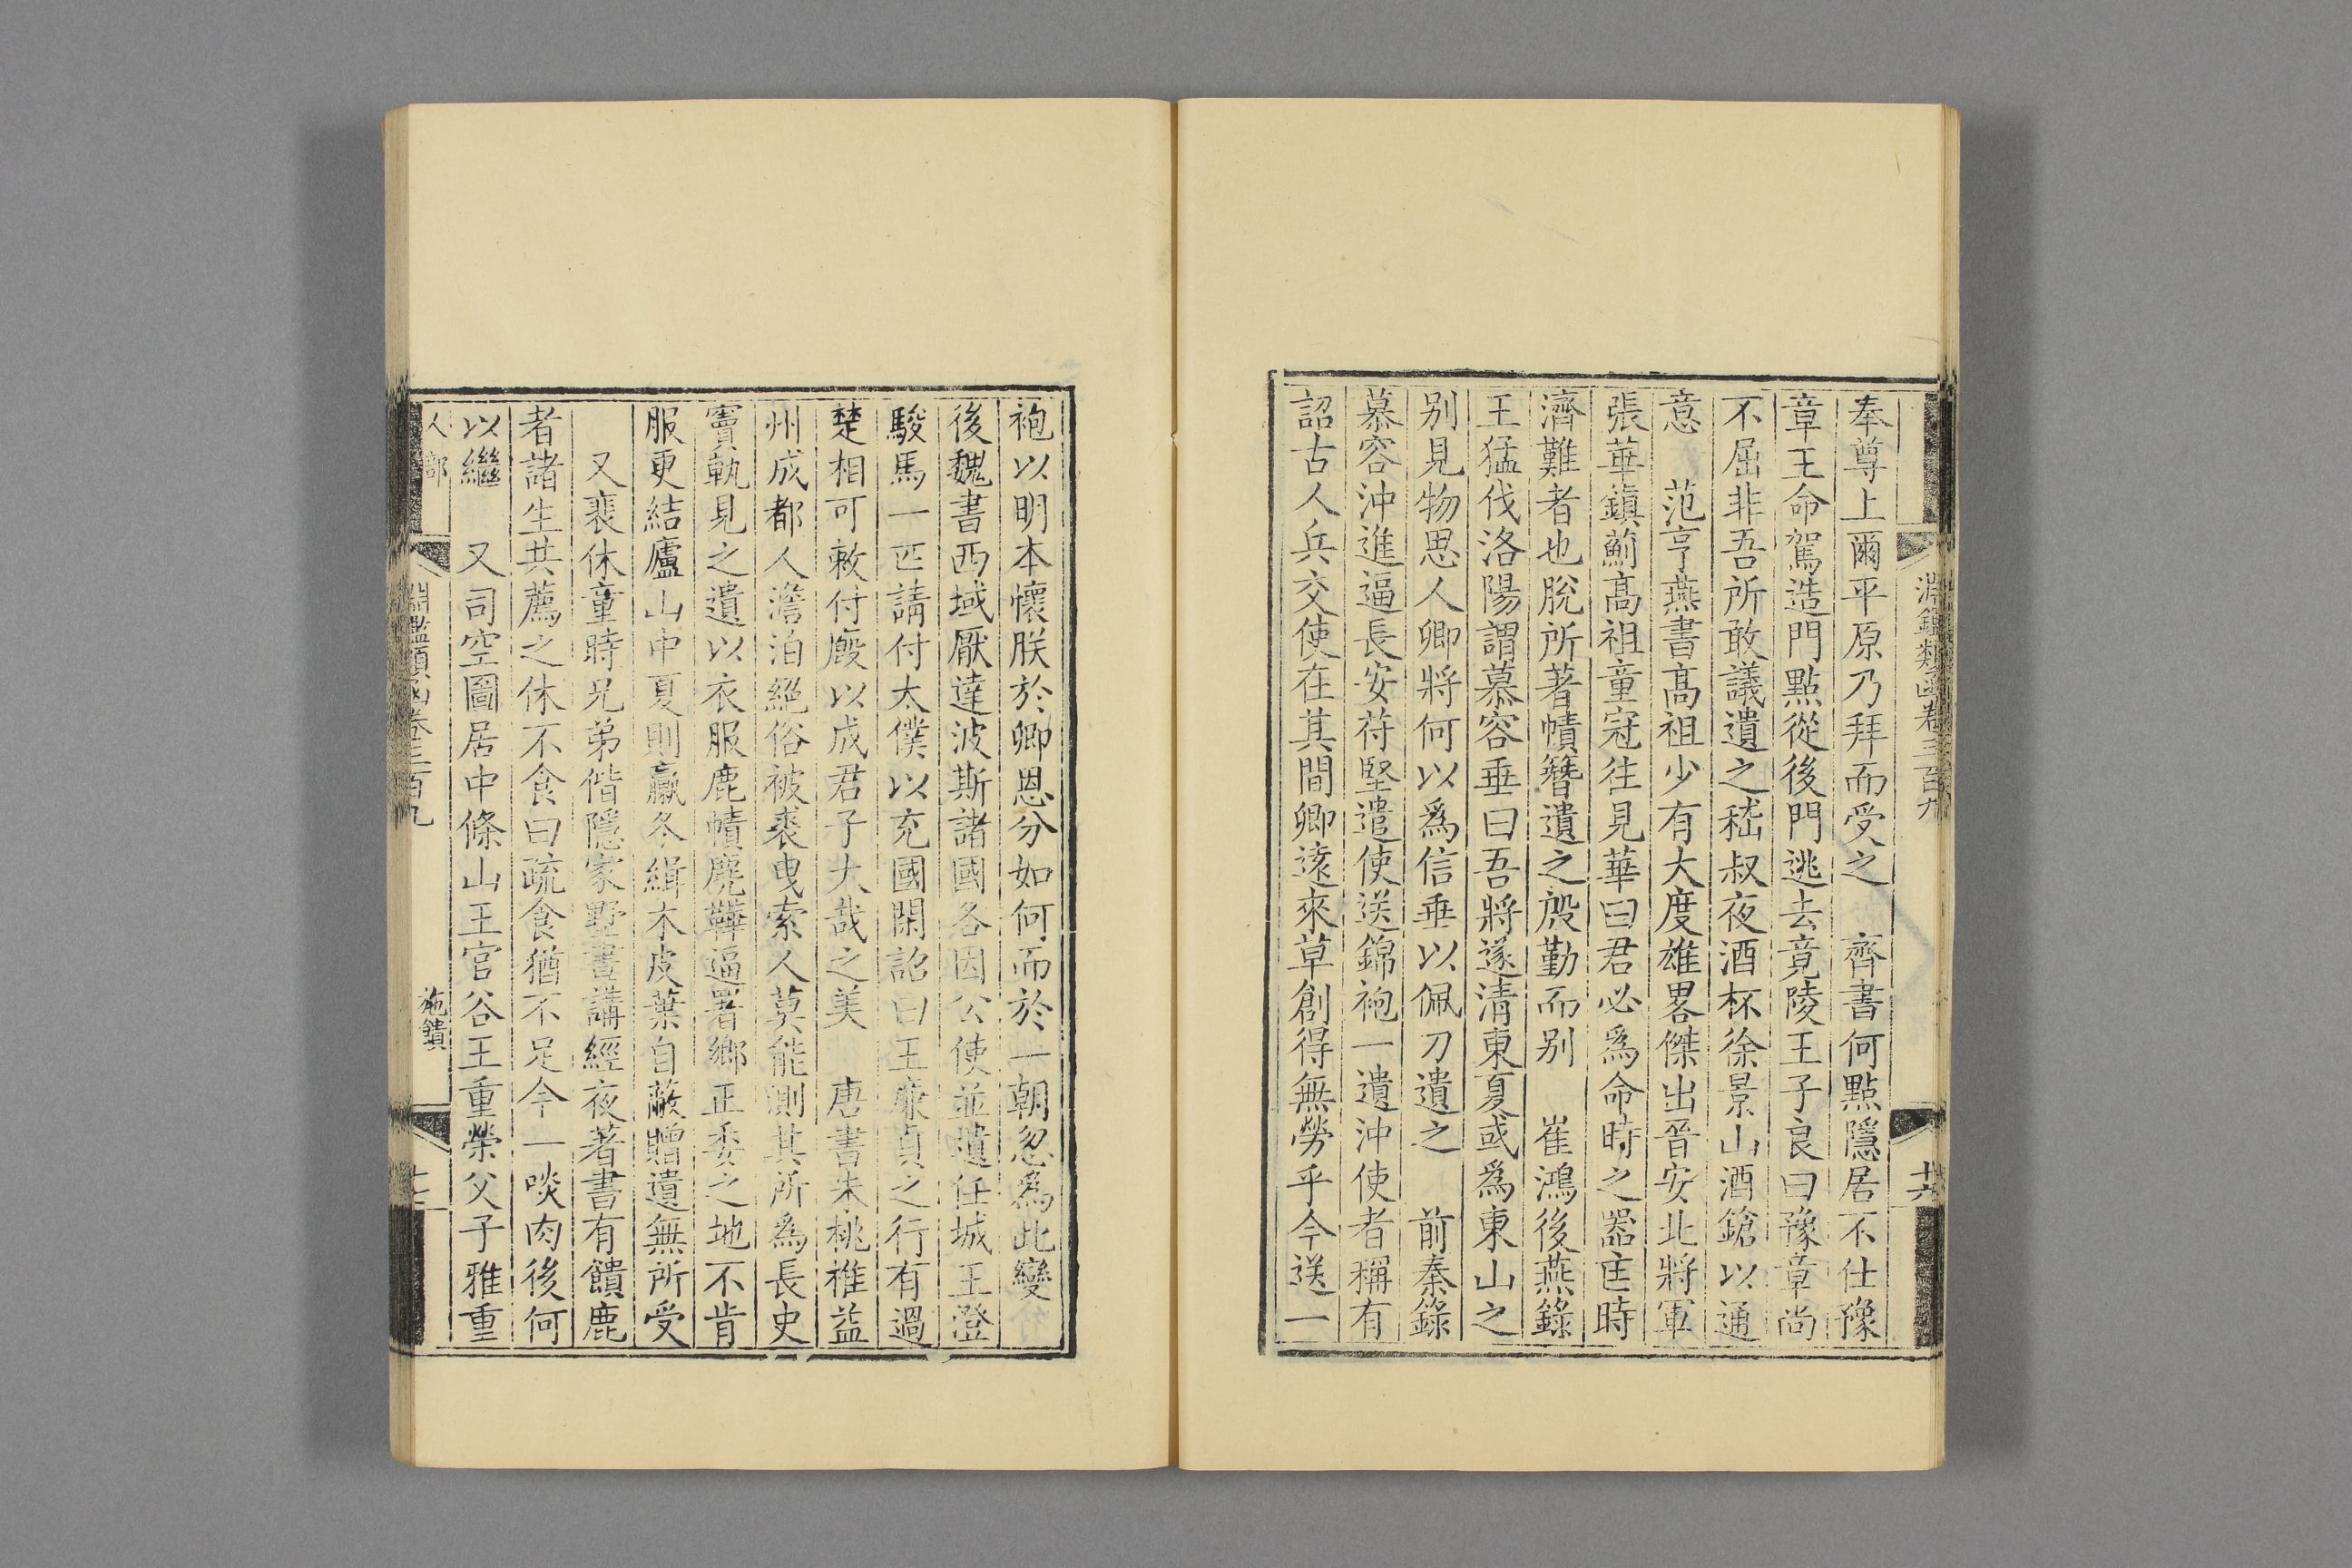 淵鑑類函卷三百九
十六
奉尊上爾平原乃拜而受之　齊書何點隱居不仕豫
章王命駕造門點從後門逃去竟陵王子良曰豫章尚
不屈非吾所敢議遺之嵇叔夜酒杯徐景山酒鎗以通
意　范亨燕書高祖少有大度雄畧傑出晉安北將軍
張華鎮薊高祖童冠往見華曰君必爲命時之器匡時
濟難者也脫所著幘簪遺之殷勤而别　崔鴻後燕錄
王猛伐洛陽謂慕容垂曰吾將遂清東夏或爲東山之
别見物思人卿將何以爲信垂以佩刀遺之　前秦錄
慕容沖進逼長安苻堅遣使送錦袍一遺沖使者稱有
詔古人兵交使在其間卿遠來草創得無勞乎今送一
袍以明本懷朕於卿恩分如何而於一朝忽爲此變
後魏書西域厭達波斯諸國各因公使並遺任城王澄
駿馬一匹請付太僕以充國閑詔曰王廉貞之行有過
楚相可敕付廄以成君子大哉之美　唐書朱桃椎益
州成都人澹泊絕俗被裘曳索人莫能測其所爲長史
竇軌見之遺以衣服鹿幘麂鞾逼署鄉正委之地不肯
服更結廬山中夏則臝冬緝木皮葉自蔽贈遺無所受
又裴休童時兄弟偕隱家墅晝講經夜著書有饋鹿
者諸生共薦之休不食曰疏食猶不足今一啖肉後何
以繼　又司空圖居中條山王官谷王重榮父子雅重
人部　淵鑑類函卷三百九　施饋　十七